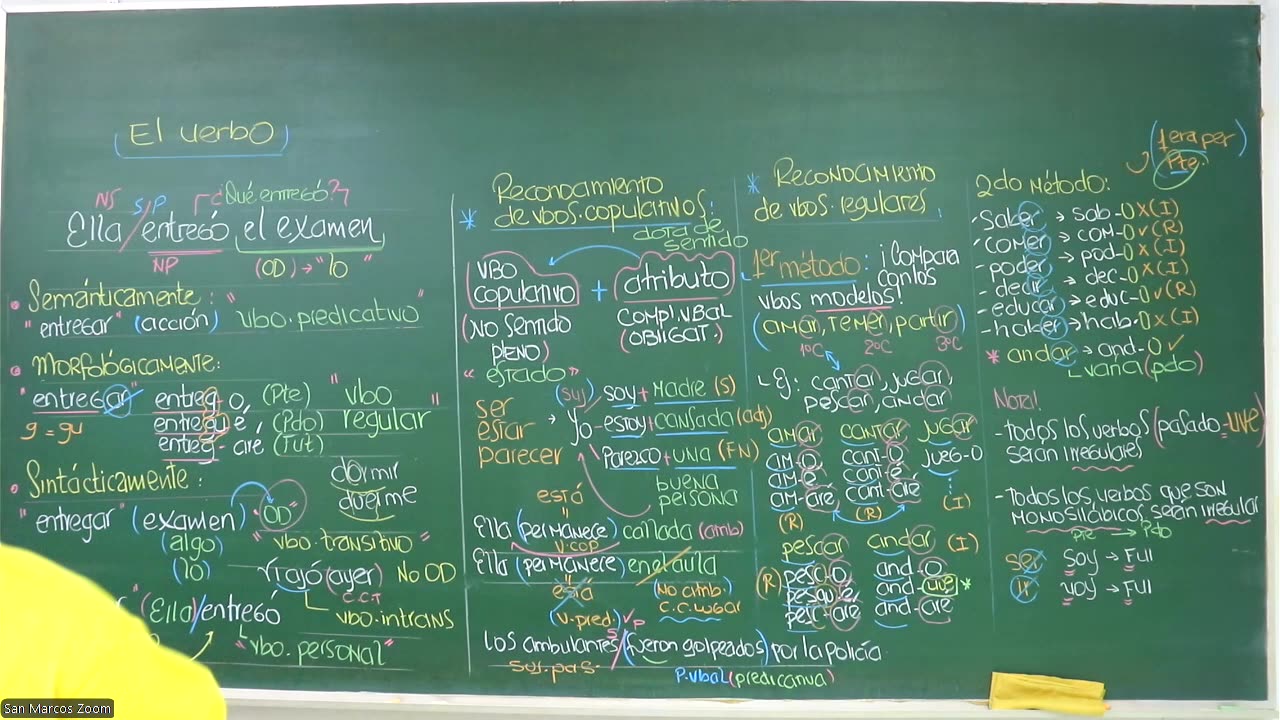 El verbo
NS S/P ¿Qué entregó?
Ella/entregó el examen
NP (OD)→"lo"
• Semánticamente:
"entregar" (acción) "vbo. predicativo"
• Morfológicamente:
"entregar" entreg-o, (Pte) "vbo
g = gu entregu-é, (Pdo) regular"
entreg-aré (Fut)
• Sintácticamente:
dormir
duerme
"entregar" (examen) "OD"
(algo) "vbo. transitivo"
(lo) Viajó (ayer) No OD
C.C.T
vbo. intrans
(Ella)/entregó
"vbo. personal"
* Reconocimiento
de vbos. copulativos:
dota de
sentido
vbo
copulativo + atributo
(No sentido
pleno)
Compl. vbal
(obligat.)
"estado"
ser
estar
parecer
(suj)
Yo
soy + Madre (S)
estoy + cansada (adj)
Parezco + una (FN)
buena
persona
está
=
Ella (permanece) callada (camb)
v. cop
Ella (permanece) en el aula
=
está
(v. pred.)
(No camb.)
C.C. Lugar
s/vp
Los ambulantes/(fueron golpeados) por la policía
suj. pas.
P. vbal (predicativa)
* Reconocimiento
de vbos. regulares:
1er método: ¡Compara
con los
vbos modelos!
(amar, temer, partir)
1°C 2°C 3°C
Ej: cantar, jugar,
pescar, andar
amar cantar jugar
am-o cant-o jueg-o
am-é cant-é
am-aré cant-aré
(R) (R) (I)
pescar andar (I)
(R) pesc-o and-o
pesqu-é and-uve *
pesc-aré and-aré
2do Método:
(1era per
Pte)
- Saber → sab-o X (I)
- comer → com-o ✓ (R)
- poder → pod-o X (I)
- decir → dec-o X (I)
- educar → educ-o ✓ (R)
- haber → hab-o X (I)
* andar → and-o ✓
varía (pdo)
Nota!
- Todos los verbos (pasado -uve)
serán Irregulares
- Todos los verbos que son
monosilábicos serán irregular
Pte → Pdo
ser Soy → Fui
ir voy → Fui
San Marcos Zoom